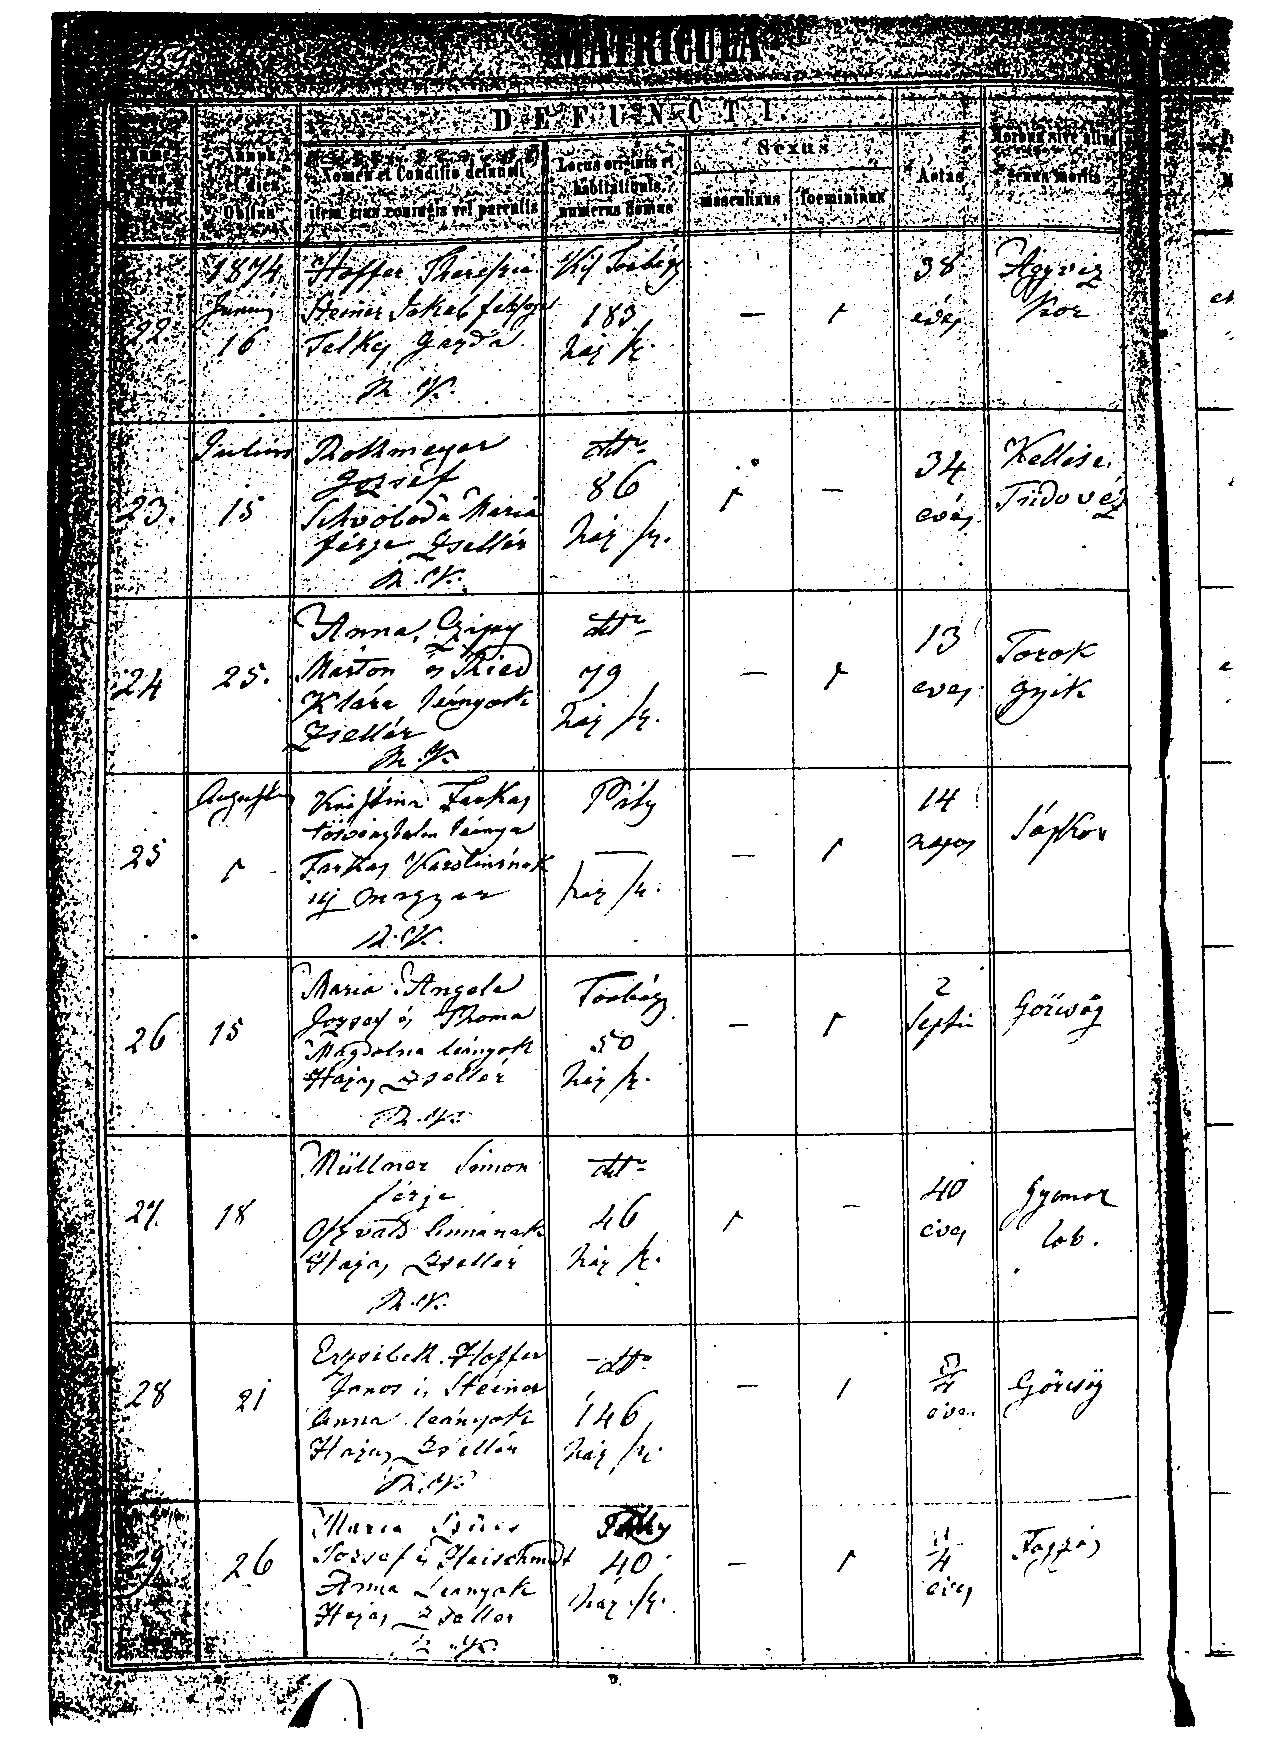 159
MATRICULA
DEFUNCTI.
Annus et dies Obitus
Nomen et Conditio defuncti item ejus conjugis vel parentis
Locus originis et habitationis, numerus domus
Sexus
masculinus
foemininus
Aetas
Morbus sive alius genus mortis
22.
1874
Junius
16
Hoffer Theresia
Steiner Jakab
Telkes gazda
R. K.
Kis Torbágy
183
ház sz.
—
1
38
éves
Agyvíz
kor
23.
Julius
15
Rothmeyer
József
Schvoboda Mária
férje Zsellér
R. K.
dtto
86
ház sz.
1
—
34
éves
Tüdővész
24
25.
Anna,
Márton és Ried
Klára leányok
Zsellér
R. K.
dtto
79
ház sz.
—
1
13
éves
Torok
gyík
25
1
Krisztina Farkas
törvénytelen leánya
Farkas Karolinának
új magyar
R. K.
Páty
—
ház sz.
—
1
14
napos
Sáskor
26
15
Maria Angele
József és Thoma
Magdolna leányok
Hajas Zsellér
R. K.
Torbágy
50
ház sz.
—
1
2
Görcsög
27.
18
Müllner Simon
férje
Oszvald Annának
Hajas Zsellér
R. K.
dtto
46
ház sz.
1
—
40
éves
Gyomor
lob.
28
21
Erzsibeth Hoffer
Janos és Steiner
Anna leányok
Hajas Zsellér
R. K.
dtto
146
ház sz.
—
1
4
éves
Görcsög
29
26
Maria
József és Fleischmidt
Anna Leányok
Hajas Zsellér
R. K.
40
ház sz.
—
1
4
éves